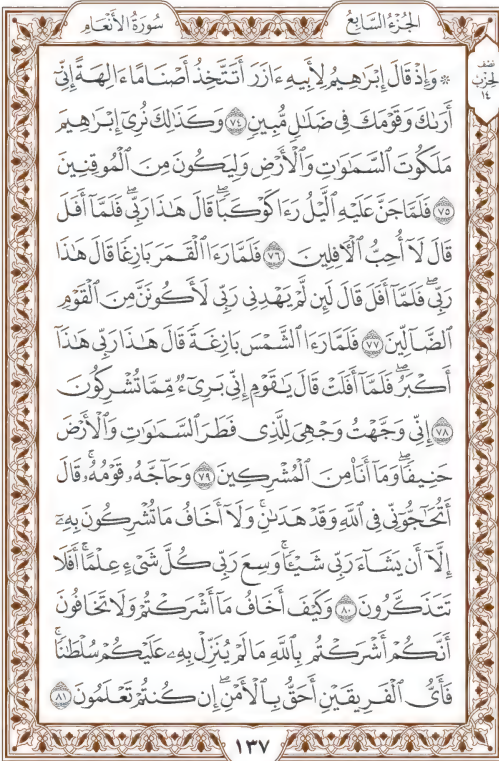 سُورَةُ الْأَنْعَامِ
الجُزْءُ السَّابِعُ
نصف
الحزب
١٤
* وَإِذْ قَالَ إِبْرَٰهِيمُ لِأَبِيهِ ءَازَرَ أَتَتَّخِذُ أَصْنَامًا ءَالِهَةً إِنِّىٓ
أَرَىٰكَ وَقَوْمَكَ فِى ضَلَٰلٍ مُّبِينٍ ٧٤ وَكَذَٰلِكَ نُرِىٓ إِبْرَٰهِيمَ
مَلَكُوتَ ٱلسَّمَٰوَٰتِ وَٱلْأَرْضِ وَلِيَكُونَ مِنَ ٱلْمُوقِنِينَ
٧٥ فَلَمَّا جَنَّ عَلَيْهِ ٱلَّيْلُ رَءَا كَوْكَبًا ۖ قَالَ هَٰذَا رَبِّى ۖ فَلَمَّآ أَفَلَ
قَالَ لَآ أُحِبُّ ٱلْءَافِلِينَ ٧٦ فَلَمَّا رَءَا ٱلْقَمَرَ بَازِغًا قَالَ هَٰذَا
رَبِّى ۖ فَلَمَّآ أَفَلَ قَالَ لَئِن لَّمْ يَهْدِنِى رَبِّى لَأَكُونَنَّ مِنَ ٱلْقَوْمِ
ٱلضَّآلِّينَ ٧٧ فَلَمَّا رَءَا ٱلشَّمْسَ بَازِغَةً قَالَ هَٰذَا رَبِّى هَٰذَآ
أَكْبَرُ ۖ فَلَمَّآ أَفَلَتْ قَالَ يَٰقَوْمِ إِنِّى بَرِىٓءٌ مِّمَّا تُشْرِكُونَ
٧٨ إِنِّى وَجَّهْتُ وَجْهِىَ لِلَّذِى فَطَرَ ٱلسَّمَٰوَٰتِ وَٱلْأَرْضَ
حَنِيفًا ۖ وَمَآ أَنَا۠ مِنَ ٱلْمُشْرِكِينَ ٧٩ وَحَآجَّهُۥ قَوْمُهُۥ ۚ قَالَ
أَتُحَٰٓجُّوٓنِّى فِى ٱللَّهِ وَقَدْ هَدَىٰنِ ۚ وَلَآ أَخَافُ مَا تُشْرِكُونَ بِهِۦٓ
إِلَّآ أَن يَشَآءَ رَبِّى شَيْـًٔا ۗ وَسِعَ رَبِّى كُلَّ شَىْءٍ عِلْمًا ۗ أَفَلَا
تَتَذَكَّرُونَ ٨٠ وَكَيْفَ أَخَافُ مَآ أَشْرَكْتُمْ وَلَا تَخَافُونَ
أَنَّكُمْ أَشْرَكْتُم بِٱللَّهِ مَا لَمْ يُنَزِّلْ بِهِۦ عَلَيْكُمْ سُلْطَٰنًا ۚ
فَأَىُّ ٱلْفَرِيقَيْنِ أَحَقُّ بِٱلْأَمْنِ ۖ إِن كُنتُمْ تَعْلَمُونَ ٨١
١٣٧